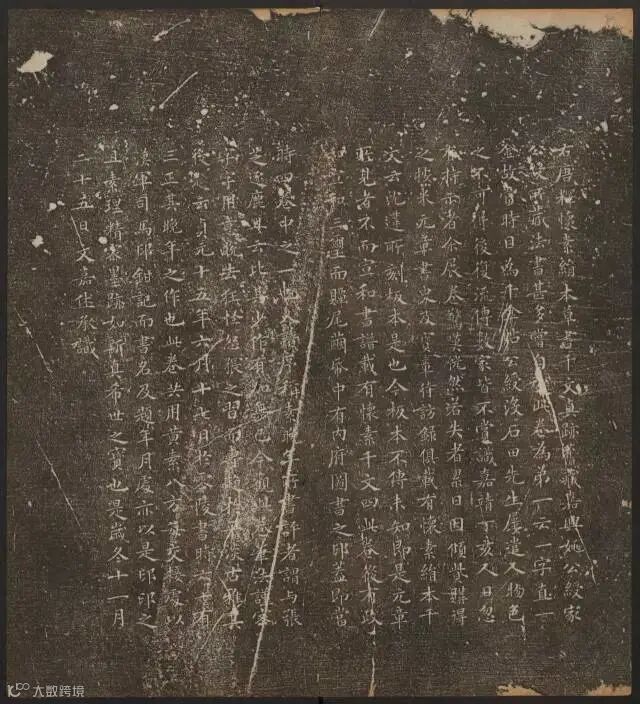 右唐僧懷素絹本草書千文真跡舊藏嘉興姚公綬家
公綬所藏法書甚多嘗自此卷為第一云一字直一
金故當時目為千金帖公綬沒石田先生屢遣人物色
之不可得後復流傳數家皆不嘗識嘉靖丁亥人日忽
有持示者余展卷驚嘆恍然若失者累日因傾貲購得
之按米元章書史及寶章待訪錄俱載有懷素絹本千
文云沈遘所刻板本是也今板本不得未知即是元章
所見者不而宣和書譜載有懷素千文四此卷後有政
和宣和二璽而中有內府圖書之印蓋即當
時四卷中之一也評者謂與張
少作有
字用意脫去狂怪怒張之習而古雅其
後題云貞元十五年六月十七日於零陵書時六十有
三正其晚年之作也此卷共用黃素八方每交接處以
軍司馬印鈐記而書名及題年月處亦以是印印之
且素理精密墨跡如新真希世之寶也是歲冬十一月
二十五日文嘉謹識
大數跨境